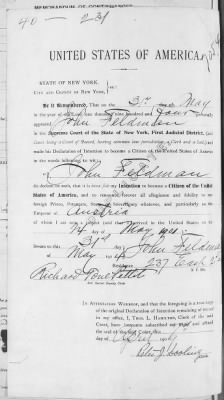 MEMORANDUM OF CONTINUANCES
40 - 231
UNITED STATES OF AMERICA
STATE OF NEW YORK,
CITY AND COUNTY OF NEW YORK, } ss.:
Be it Remembered, That on the 31st day of May
in the year of our Lord one thousand nine hundred and four personally
appeared John Feldman
in the Supreme Court of the State of New York, First Judicial District, (said
Court being a Court of Record, having common law jurisdiction, a Clerk and a Seal,) and
made his Declaration of Intention to become a Citizen of the United States of America
in the words following, to wit:
I, John Feldman
do declare on oath, that it is bona fide my Intention to become a Citizen of the United
States of America, and to renounce forever all allegiance and fidelity to any
foreign Prince, Potentate, State or Sovereignty whatever, and particularly to the
Emperor of Austria
of whom I am now a subject (and that I arrived in the United States on the
14 day of May 1901
Sworn to this 31st
day of May 1904 } John Feldman
Residence 237 East
N. Y. City.
IN ATTESTATION WHEREOF, and that the foregoing is a true copy
of the original Declaration of Intention remaining of record
in my office, I, THOS. L. HAMILTON, Clerk of the said
Court, have hereunto subscribed my name and affixed
the seal of the said Court, this
day of
Peter J. Dooling